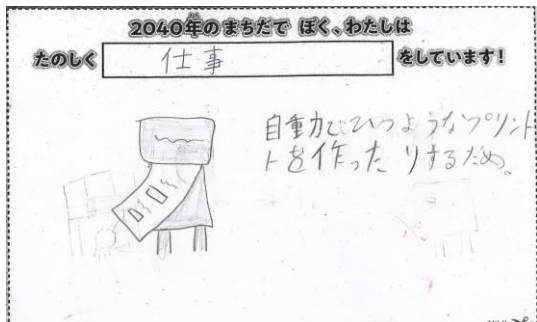 2040年のまちだで ぼく、わたしは
たのしく 仕事 をしています!
自重力でひつようなプリント
トを作ったりするため。